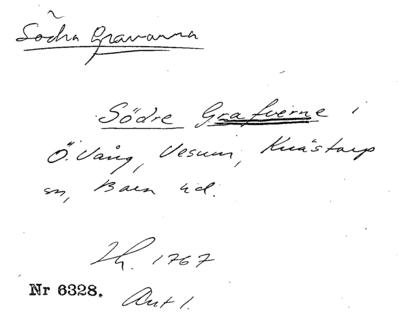 Södra Gravarna
Södre Grafverne i
Ö. Vång, Vesum, Knästorp
sn, Bara hd.
Lh. 1767
Nr 6328.
Akt 1.